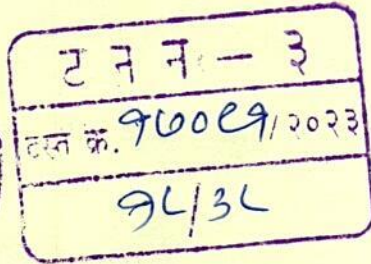 ट न न - ३
दस्त क्र. १७०९१/२०२३
१८/३८